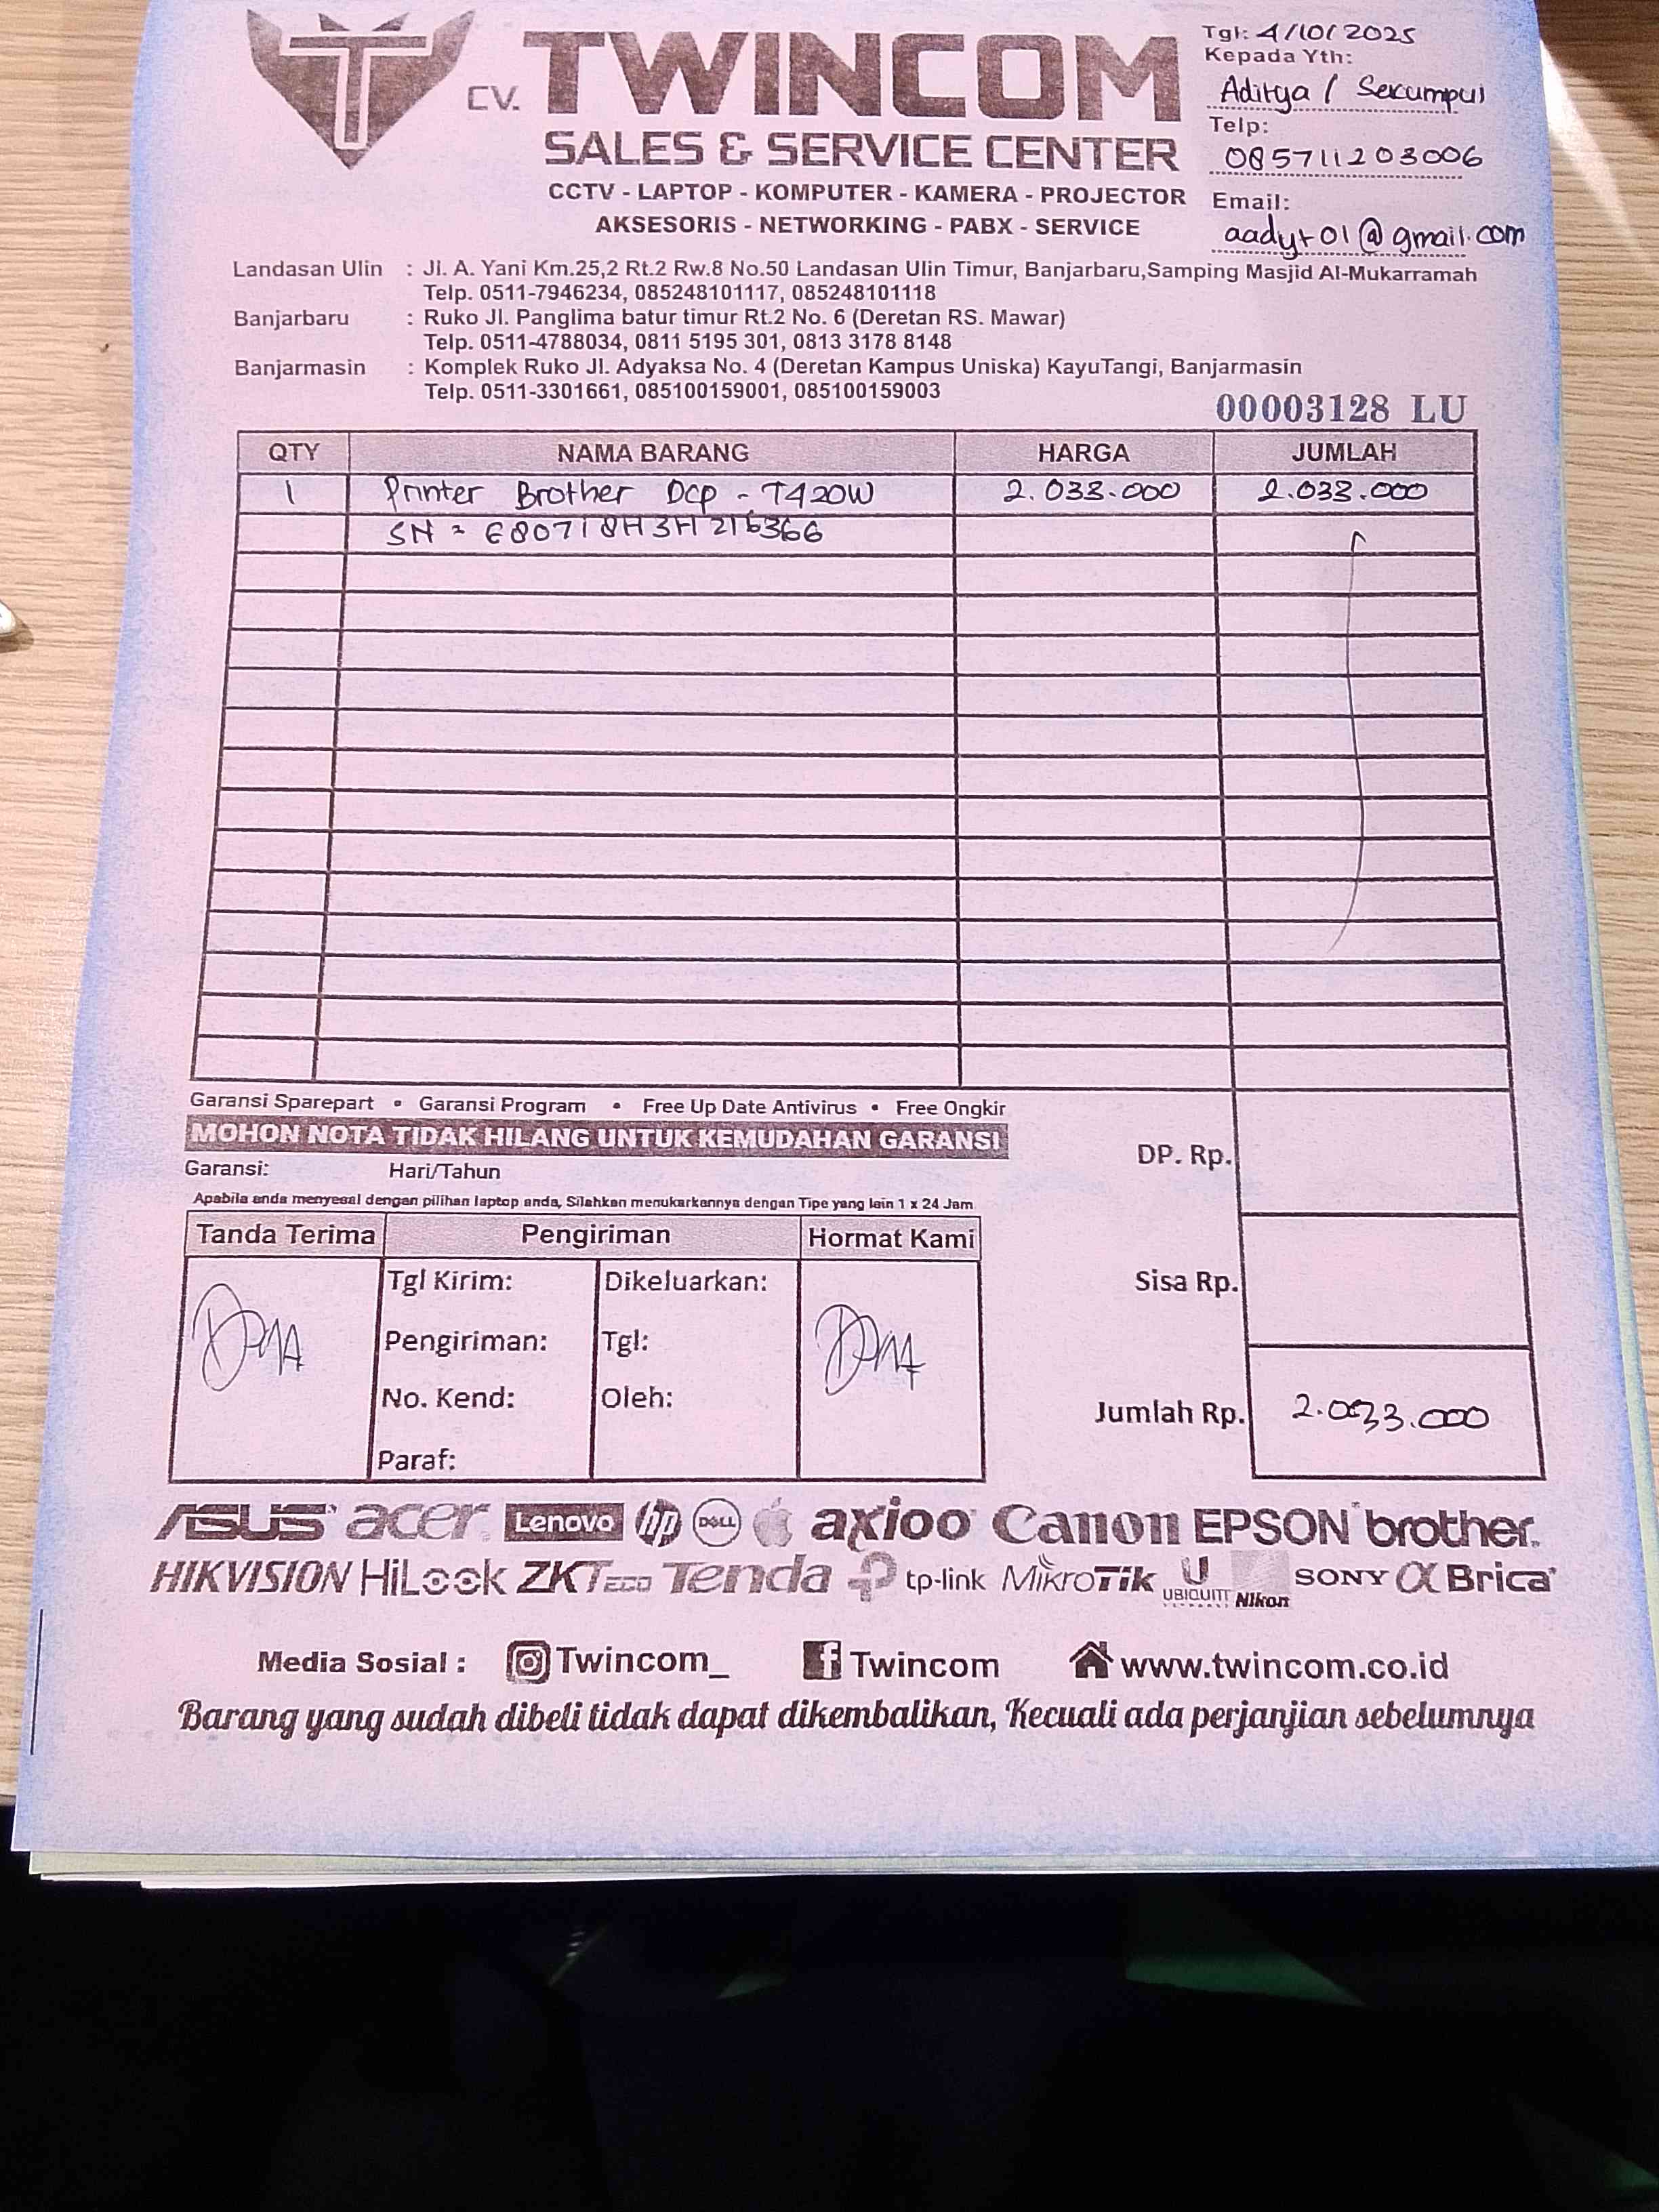 CV. TWINCOM
SALES & SERVICE CENTER
CCTV - LAPTOP - KOMPUTER - KAMERA - PROJECTOR
AKSESORIS - NETWORKING - PABX - SERVICE
Tgl: 4/10/2025
Kepada Yth:
Aditya / Sekumpul
Telp:
085711203006
Email:
aadyt01@gmail.com
Landasan Ulin : Jl. A. Yani Km.25,2 Rt.2 Rw.8 No.50 Landasan Ulin Timur, Banjarbaru,Samping Masjid Al-Mukarramah
Telp. 0511-7946234, 085248101117, 085248101118
Banjarbaru : Ruko Jl. Panglima batur timur Rt.2 No. 6 (Deretan RS. Mawar)
Telp. 0511-4788034, 0811 5195 301, 0813 3178 8148
Banjarmasin : Komplek Ruko Jl. Adyaksa No. 4 (Deretan Kampus Uniska) KayuTangi, Banjarmasin
Telp. 0511-3301661, 085100159001, 085100159003
00003128 LU
QTY NAMA BARANG HARGA JUMLAH
1 Printer Brother Dcp - T420W 2.033.000 2.033.000
SN = E80718H3H216366
Garansi Sparepart • Garansi Program • Free Up Date Antivirus • Free Ongkir
MOHON NOTA TIDAK HILANG UNTUK KEMUDAHAN GARANSI
Garansi: Hari/Tahun
Apabila anda menyesal dengan pilihan laptop anda, Silahkan menukarkannya dengan Tipe yang lain 1 x 24 Jam
DP. Rp.
Sisa Rp.
Jumlah Rp. 2.033.000
Tanda Terima Pengiriman Hormat Kami
Tgl Kirim: Dikeluarkan:
Pengiriman: Tgl:
No. Kend: Oleh:
Paraf:
ASUS acer Lenovo hp DELL axioo Canon EPSON brother
HIKVISION HiLook ZKTeco Tenda tp-link MikroTik U UBIQUITI Nikon SONY α Brica
Media Sosial : Twincom_ Twincom www.twincom.co.id
Barang yang sudah dibeli tidak dapat dikembalikan, Kecuali ada perjanjian sebelumnya